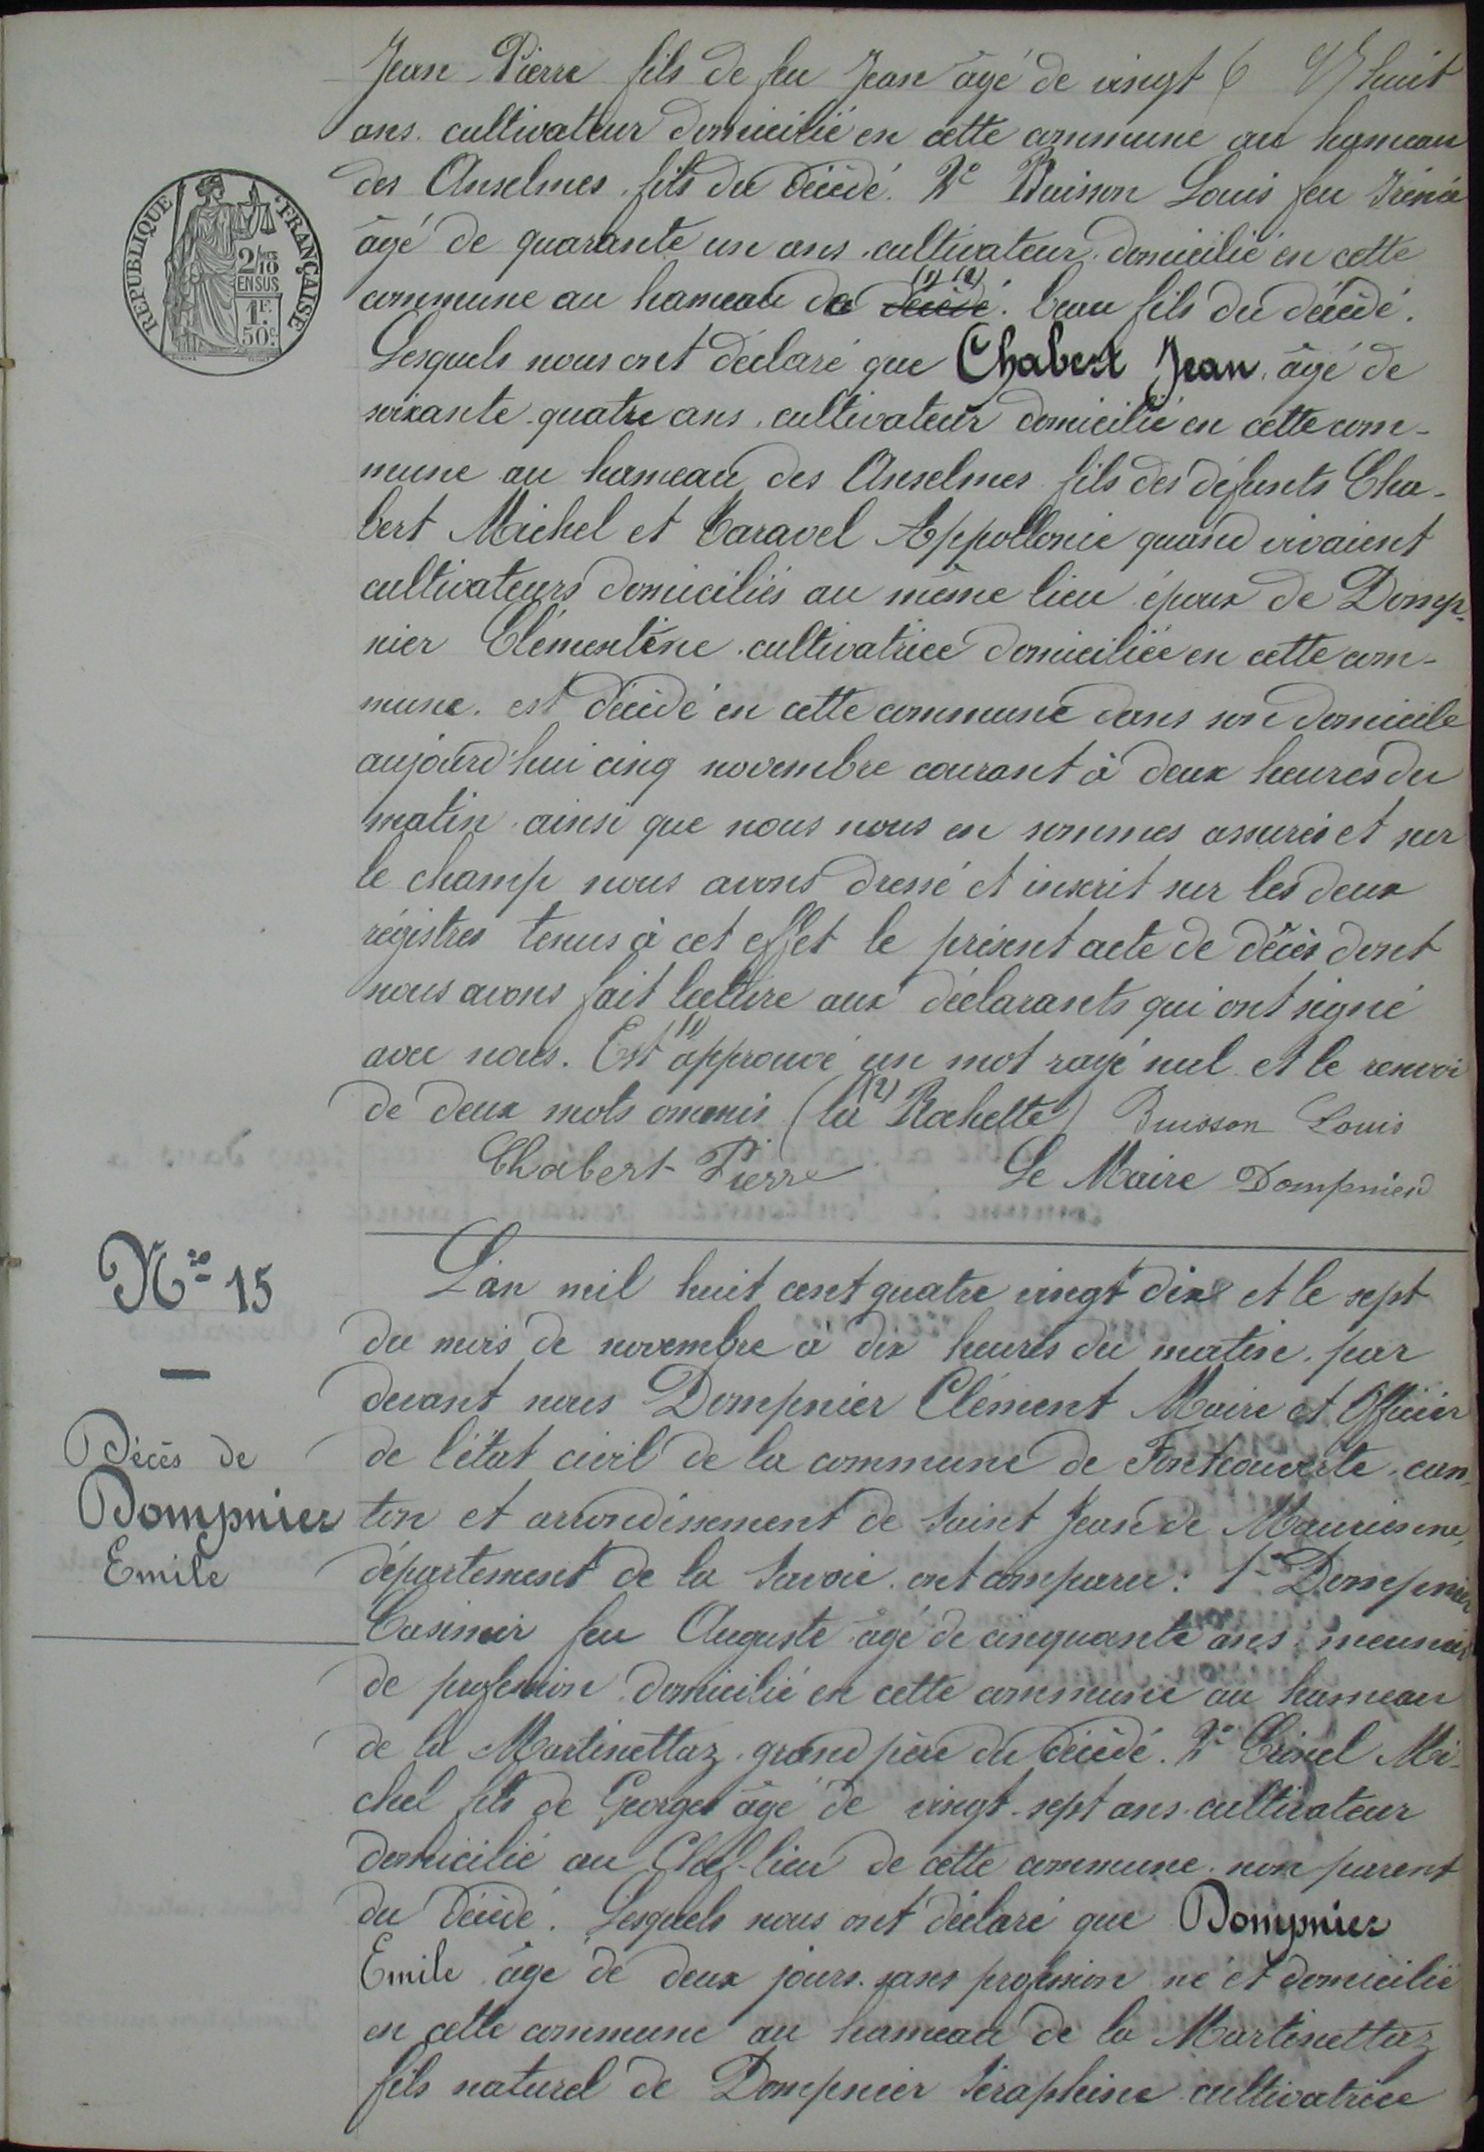 Jean Pierre fils de feu Jean âgé de vingt huit
ans. cultivateur domicilié en cette commune au hameau
des Anselmes. fils du décédé. 2° Buisson Louis feu Irénée
âgé de quarante un ans. cultivateur. domicilié en cette
(1) (2)
commune au hameau de décédé. beau fils du décédé.
Lesquels nous ont déclaré que Chabert Jean. âgé de
soixante quatre ans. cultivateur domicilié en cette com-
mune au hameau des Anselmes fils des défunts Cha-
bert Michel et Taravel Appollonie quand vivaient
cultivateurs domiciliés au même lieu époux de Domp-
nier Clémentine cultivatrice domiciliée en cette com-
mune. est décédé en cette commune dans son domicile
aujourd'hui cinq novembre courant à deux heures du
matin ainsi que nous nous en sommes assurés et sur
le champ nous avons dressé et inscrit sur les deux
régistres tenus à cet effet le présent acte de décès dont
nous avons fait lecture aux déclarants qui ont signé
avec nous. Est (1) approuvé un mot rayé nul et le renvoi
de deux mots ommis (2) (la Rochette) Buisson Louis
Chabert Pierre Le Maire Dompnier
REPUBLIQUE FRANÇAISE
2/10 EN SUS
1F. 50c.
N° 15
Décès de
Dompnier
Emile
L'an mil huit cent quatre vingt dix et le sept
du mois de novembre à dix heures du matin. par
devant nous Dompnier Clément Maire et Officier
de l'état civil de la commune de Fontcouverte. can-
ton et arrondissement de Saint Jean de Maurienne,
département de la Savoie. ont comparu: 1° Dompnier
Casimir feu Auguste âgé de cinquante ans. meunier
de profession. domicilié en cette commune au hameau
de la Martinettaz. grand père du décédé. 2° Mi-
chel fils de Georges âgé de vingt-sept ans. cultivateur
domicilié au Chef-lieu de cette commune. non parent
du décédé. Lesquels nous ont déclaré que Dompnier
Emile âgé de deux jours. sans profession né et domicilié
en cette commune au hameau de la Martinettaz
fils naturel de Dompnier Séraphine cultivatrice